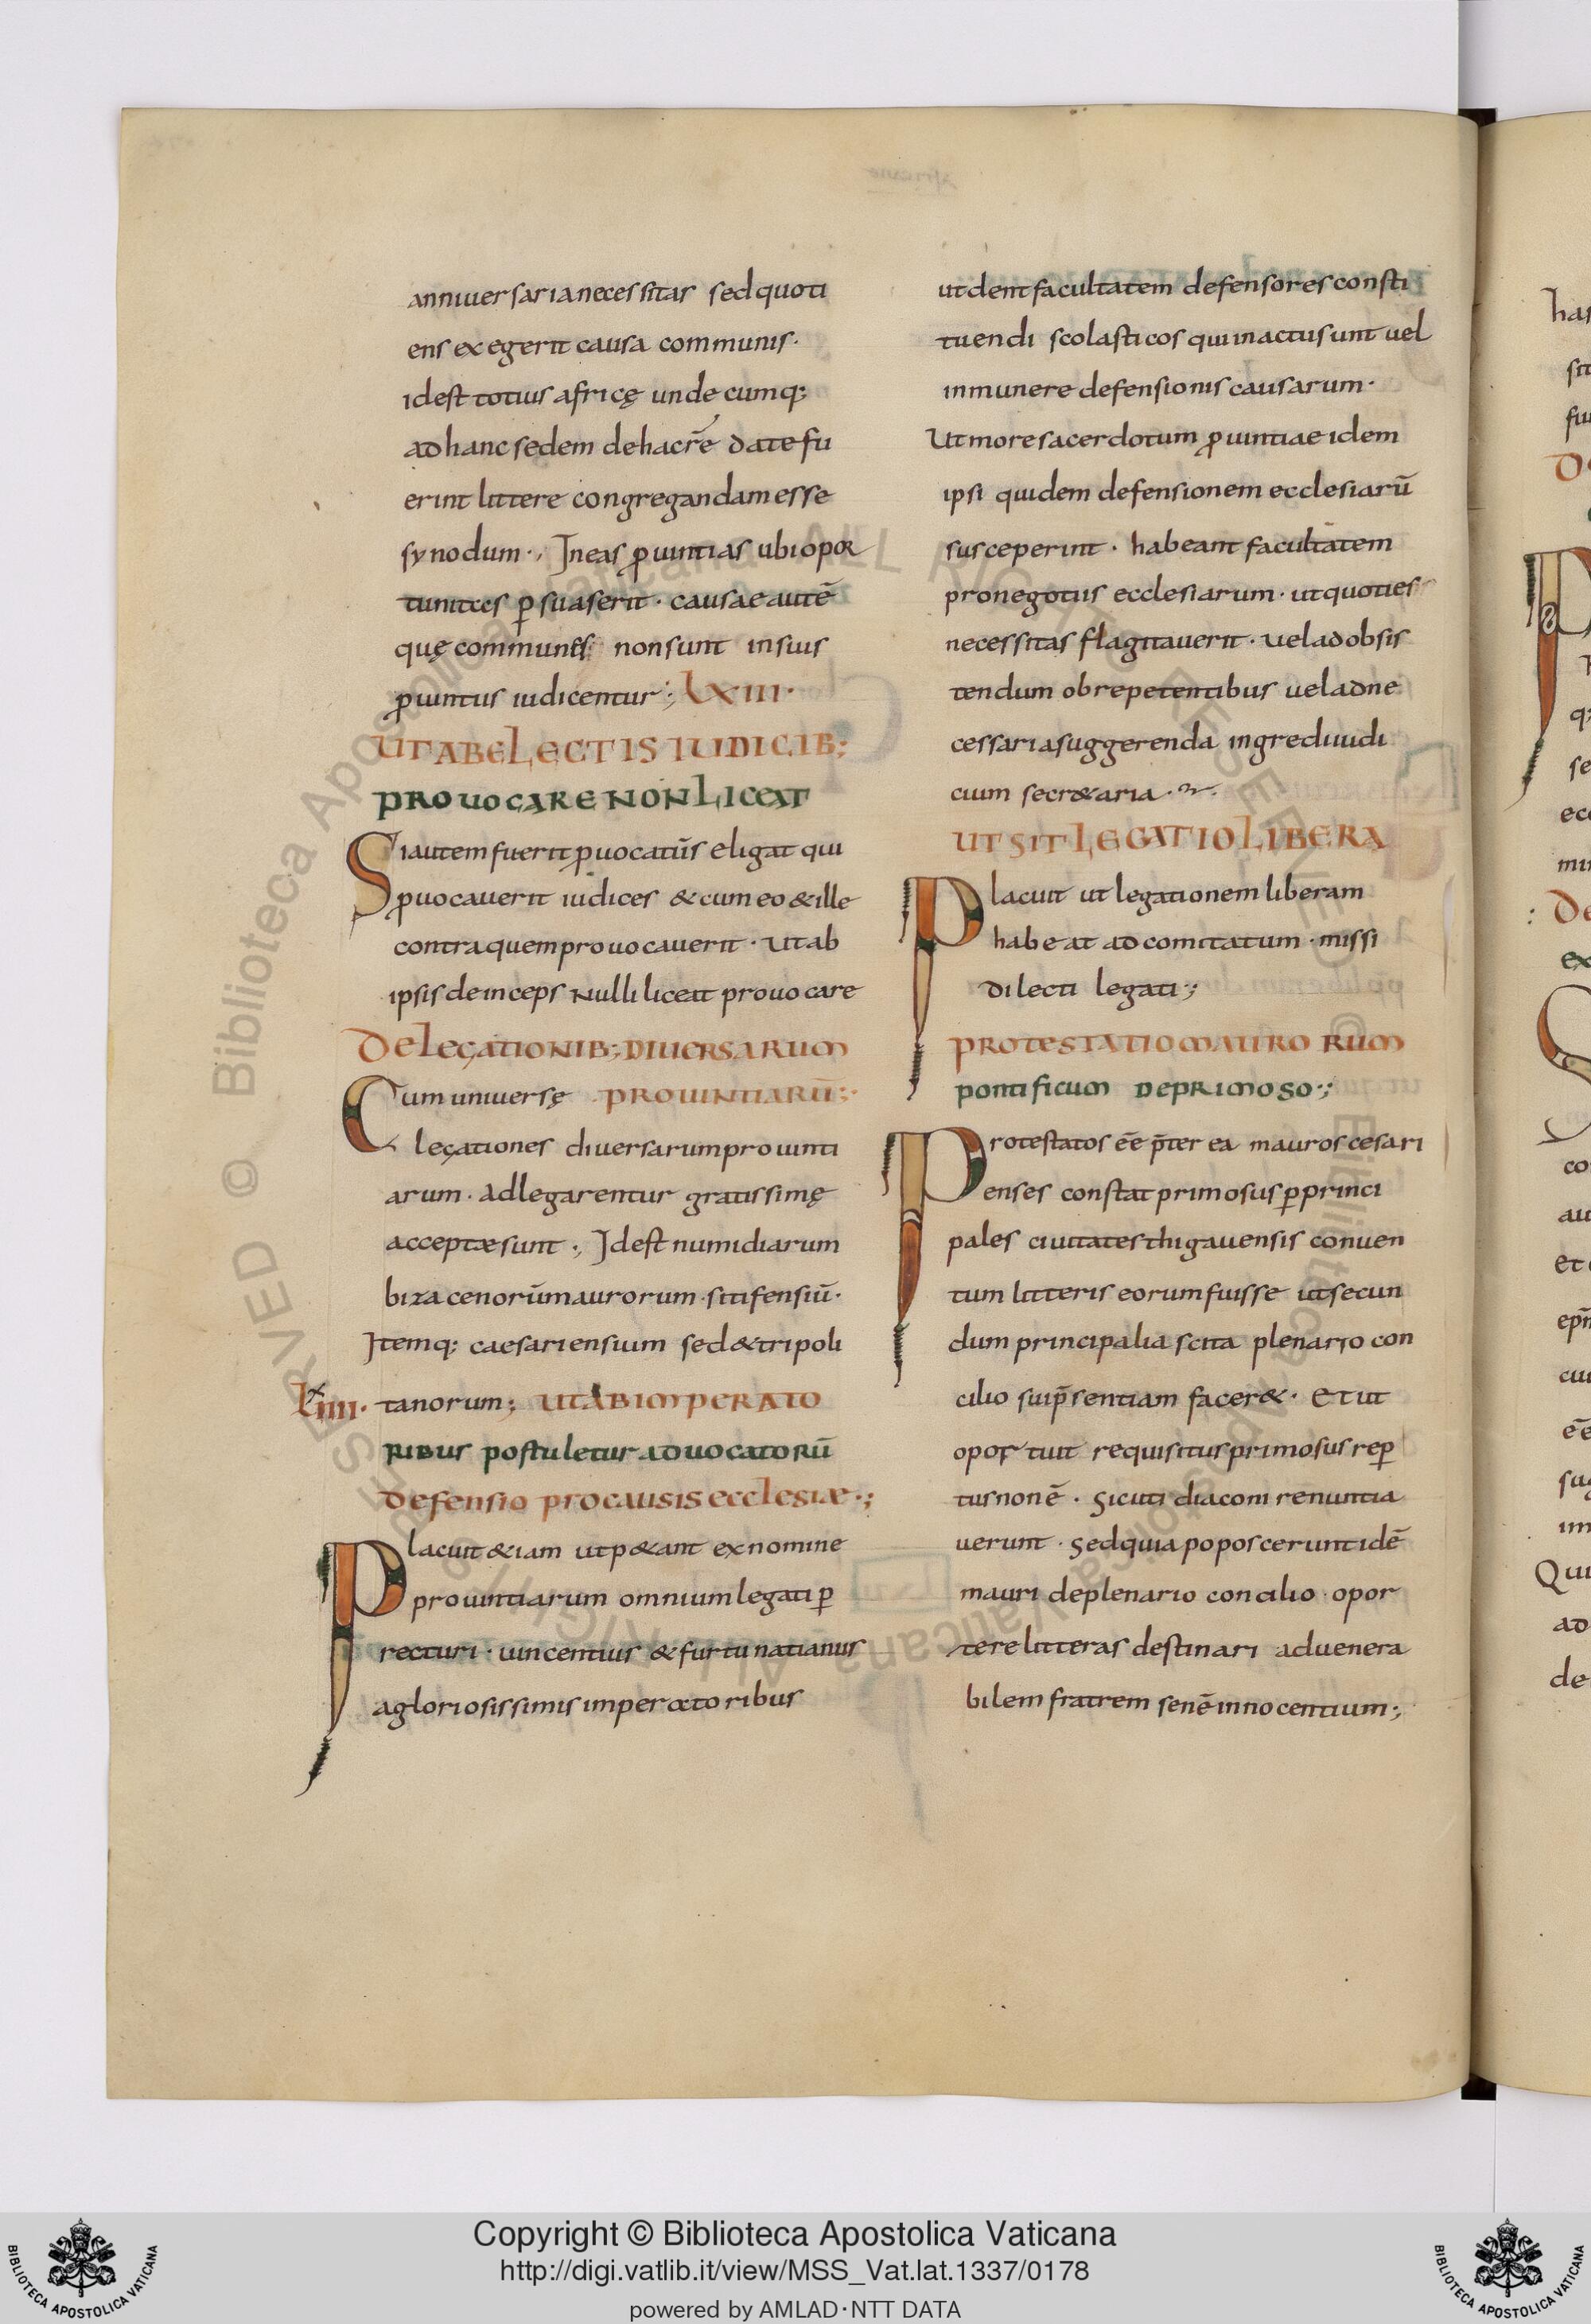 anniuersaria necessitas sed quoti
ens exegerit causa communis·
id est totius africę unde cumq;
ad hanc sedem de hac r̄e datę fu
erint littere congregandam esse
synodum·, In eas ꝓuintias ubi opor
tunitas ꝑsuaserit· causae autē
quę communes non sunt in suis
ꝓuintiis iudicentur; LXIII·
UT AB ELECTIS IUDICIB;
PROUOCARE NON LICEAT
Si autem fuerit ꝓuocatū eligat qui
ꝓuocauerit iudices & cum eo & ille
contra quem prouocauerit· Ut ab
ipsis deinceps Nulli liceat prouocare
De legationib; diuersarum
Cum uniuersę prouintiarū;·
legationes diuersarum prouinti
arum· adlegarentur gratissimę
acceptæ sunt·, Id est numidiarum
bizacenorū maurorum· sitifensiū·
Itemq; caesariensium sed & tripoli
LXIIII· tanorum; ut ab imperato
ribus postuletur aduocatorū
defensio pro causis ecclesiæ·;
Placuit & iam ut p&ant ex nomine
prouintiarum omnium legati ꝑ
recturi· uincentius & furtunatianus
a gloriosissimis imperatoribus
ut dent facultatem defensores consti
tuendi scolasticos qui in actu sunt uel
in munere defensionis causarum·
Ut more sacerdotum ꝓuintiae idem
ipsi quidem defensionem ecclesiarū
susceperint· habeant facultatem
pro negotiis ecclesiarum· ut quoties
necessitas flagitauerit· uel ad obsis
tendum obrepetentibus uel ad ne
cessaria suggerenda ingredi iudi
cium secr&aria·
UT SIT LEGATIO LIBERA
Placuit ut legationem liberam
habeat ad comitatum· missi
dilecti legati·;
PROTESTATIO MAURORUM
pontificum de primoso·;
Protestatos ēe p̄ter ea mauros cesari
enses constat primosus ꝑ princi
pales ciuitates thigauensis conuen
tum litteris eorum fuisse ut secun
dum principalia scita plenario con
cilio sui p̄sentiam facer&· Et ut
oportuit requisitus primosus reꝑ
tus non ē· Sicuti diaconi renuntia
uerunt· Sed quia poposcerunt idē
mauri de plenario concilio· opor
tere litteras destinari ad uenera
bilem fratrem senē innocentium·;
Copyright © Biblioteca Apostolica Vaticana
http://digi.vatlib.it/view/MSS_Vat.lat.1337/0178
powered by AMLAD·NTT DATA
BIBLIOTECA APOSTOLICA VATICANA
BIBLIOTECA APOSTOLICA VATICANA